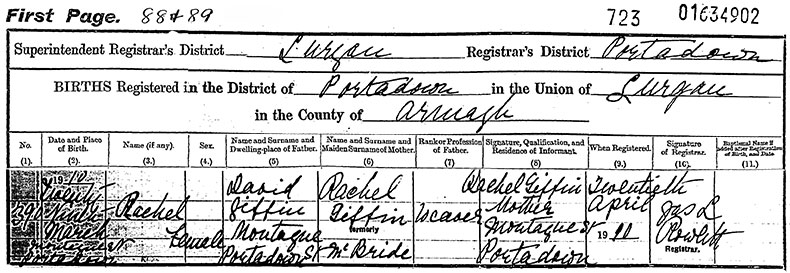 First Page. 88&89 723 01634902
Superintendent Registrar's District Lurgan Registrar's District Portadown
BIRTHS Registered in the District of Portadown in the Union of Lurgan
in the County of Armagh
No. Date and Place of Birth. Name (if any). Sex. Name and Surname and Dwelling-place of Father. Name and Surname and Maiden Surname of Mother. Rank or Profession of Father. Signature, Qualification, and Residence of Informant. When Registered. Signature of Registrar. Baptismal Name if added after Registration of Birth, and Date.
(1). (2.) (3.) (4.) (5) (6) (7) (8) (9.) (10.) (11.)
1910
David Rachel Rachel Giffin Twentieth
Rachel Giffin Giffin Weaver Mother April Jas L
March Female Montague formerly Montague St 1911 Rowlett
Portadown Portadown St McBride Portadown Registrar.